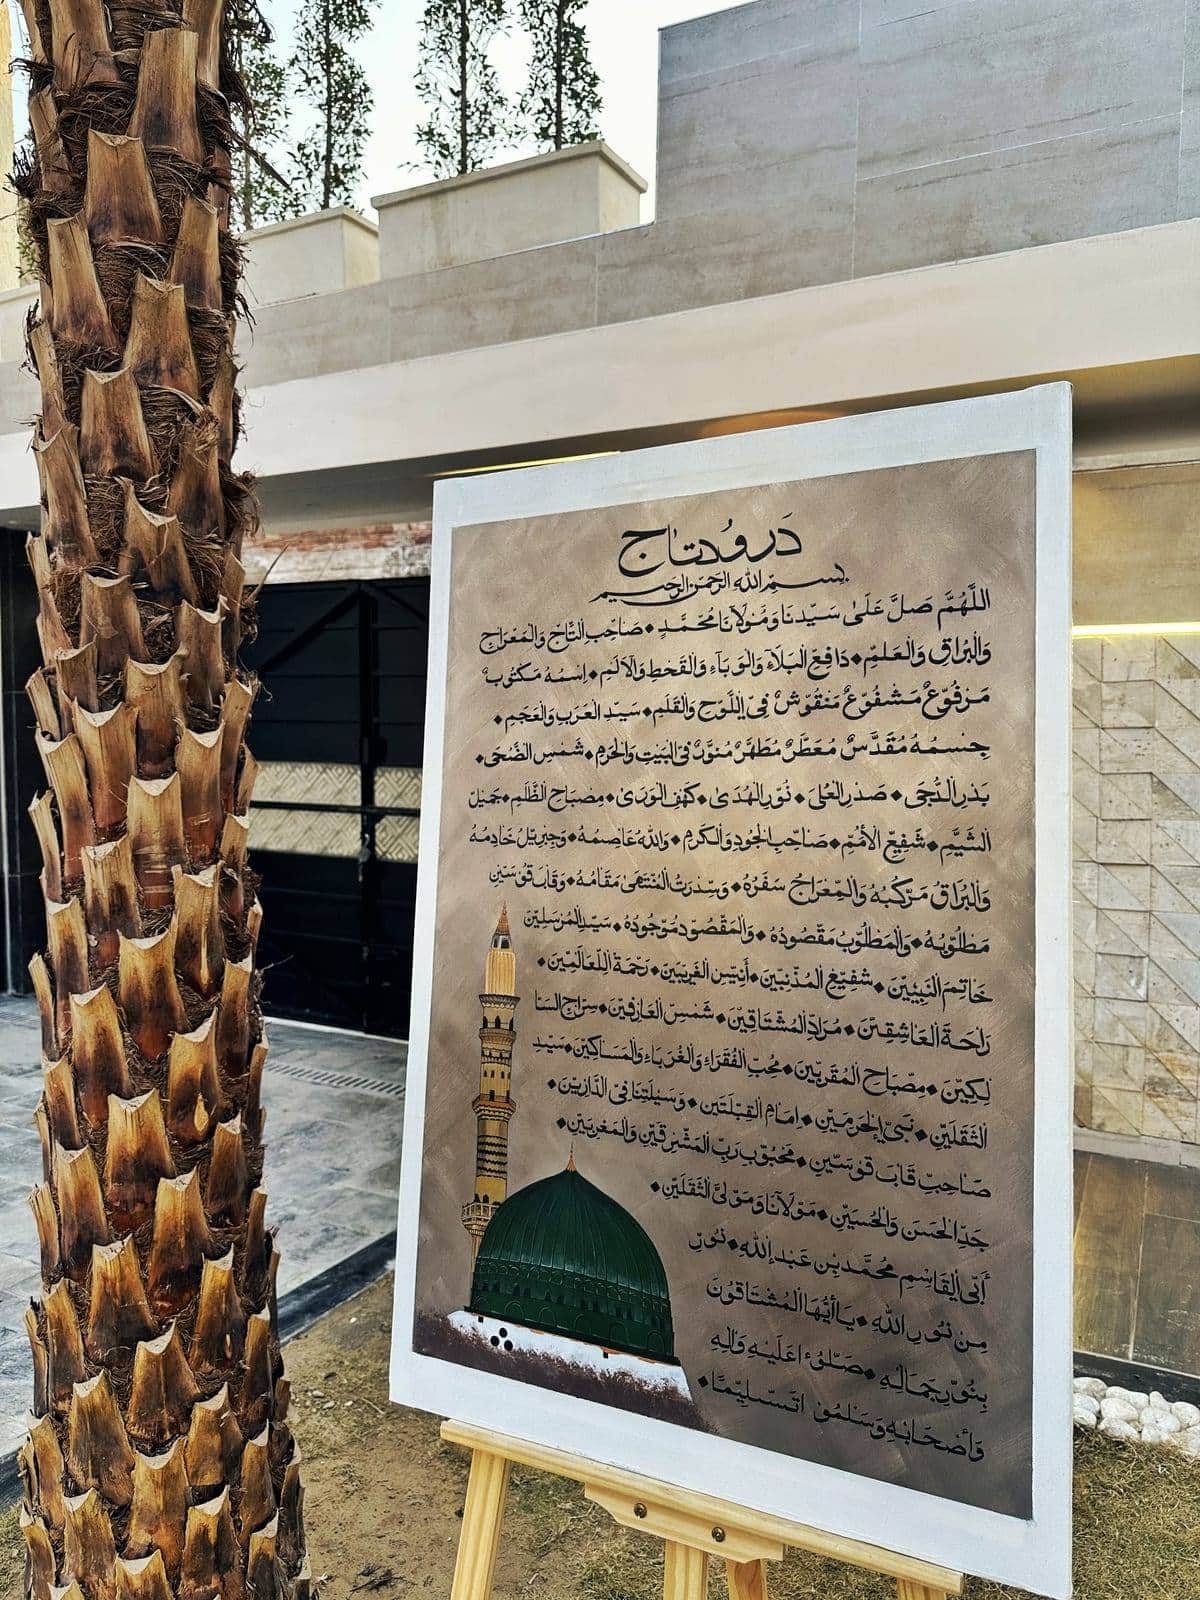 دَرُودِتاج
بِسْمِ اللهِ الرَّحْمٰنِ الرَّحِيمِ
اللَّهُمَّ صَلِّ عَلَىٰ سَيِّدِنَا وَمَوْلَانَا مُحَمَّدٍ ◆ صَاحِبِ التَّاجِ وَالْمِعْرَاجِ
وَالْبُرَاقِ وَالْعَلَمِ ◆ دَافِعِ الْبَلَاءِ وَالْوَبَاءِ وَالْقَحْطِ وَالْأَلَمِ ◆ اِسْمُهُ مَكْتُوبٌ
مَرْفُوعٌ مَشْفُوعٌ مَنْقُوشٌ فِي اللَّوْحِ وَالْقَلَمِ ◆ سَيِّدِ الْعَرَبِ وَالْعَجَمِ ◆
جِسْمُهُ مُقَدَّسٌ مُعَطَّرٌ مُطَهَّرٌ مُنَوَّرٌ فِي الْبَيْتِ وَالْحَرَمِ ◆ شَمْسِ الضُّحَى ◆
بَدْرِ الدُّجَى ◆ صَدْرِ الْعُلَىٰ ◆ نُورِ الْهُدَىٰ ◆ كَهْفِ الْوَرَىٰ ◆ مِصْبَاحِ الظُّلَمِ ◆ جَمِيْلِ
الشِّيَمِ ◆ شَفِيعِ الْأُمَمِ ◆ صَاحِبِ الْجُودِ وَالْكَرَمِ ◆ وَاللهُ عَاصِمُهُ ◆ وَجِبْرِيلُ خَادِمُهُ
وَالْبُرَاقُ مَرْكَبُهُ وَالْمِعْرَاجُ سَفَرُهُ ◆ وَسِدْرَتُ الْمُنْتَهَىٰ مَقَامُهُ ◆ وَقَابَ قَوْسَيْنِ
مَطْلُوبُهُ ◆ وَالْمَطْلُوبُ مَقْصُودُهُ ◆ وَالْمَقْصُودُ مَوْجُودُهُ ◆ سَيِّدِ الْمُرْسَلِيْنَ
خَاتِمِ النَّبِيِّيْنَ ◆ شَفِيْعِ الْمُذْنِبِيْنَ ◆ أَنِيْسِ الْغَرِيْبِيْنَ ◆ رَحْمَةَ اللِّعَالَمِيْنَ ◆
رَاحَةِ الْعَاشِقِيْنَ ◆ مُرَادِ الْمُشْتَاقِيْنَ ◆ شَمْسِ الْعَارِفِيْنَ ◆ سِرَاجِ السَّا
لِكِيْنَ ◆ مِصْبَاحِ الْمُقَرَّبِيْنَ ◆ مُحِبِّ الْفُقَرَاءِ وَالْغُرَبَاءِ وَالْمَسَاكِيْنَ ◆ سَيِّدِ
الثَّقَلَيْنِ ◆ نَبِيِّ الْحَرَمَيْنِ ◆ اِمَامِ الْقِبْلَتَيْنِ ◆ وَسِيْلَتِنَا فِي الدَّارَيْنِ ◆
صَاحِبِ قَابَ قَوْسَيْنِ ◆ مَحْبُوبِ رَبِّ الْمَشْرِقَيْنِ وَالْمَغْرِبَيْنِ ◆
جَدِّ الْحَسَنِ وَالْحُسَيْنِ ◆ مَوْلَانَا وَمَوْلَى الثَّقَلَيْنِ ◆
أَبِي الْقَاسِمِ مُحَمَّدِ بْنِ عَبْدِ اللهِ ◆ نُورٍ
مِنْ نُورِ اللهِ ◆ يَا أَيُّهَا الْمُشْتَاقُونَ
بِنُورِ جَمَالِهِ ◆ صَلُّوْا عَلَيْهِ وَآلِهِ
وَأَصْحَابِهِ وَسَلِّمُوْا تَسْلِيْمًا ◆